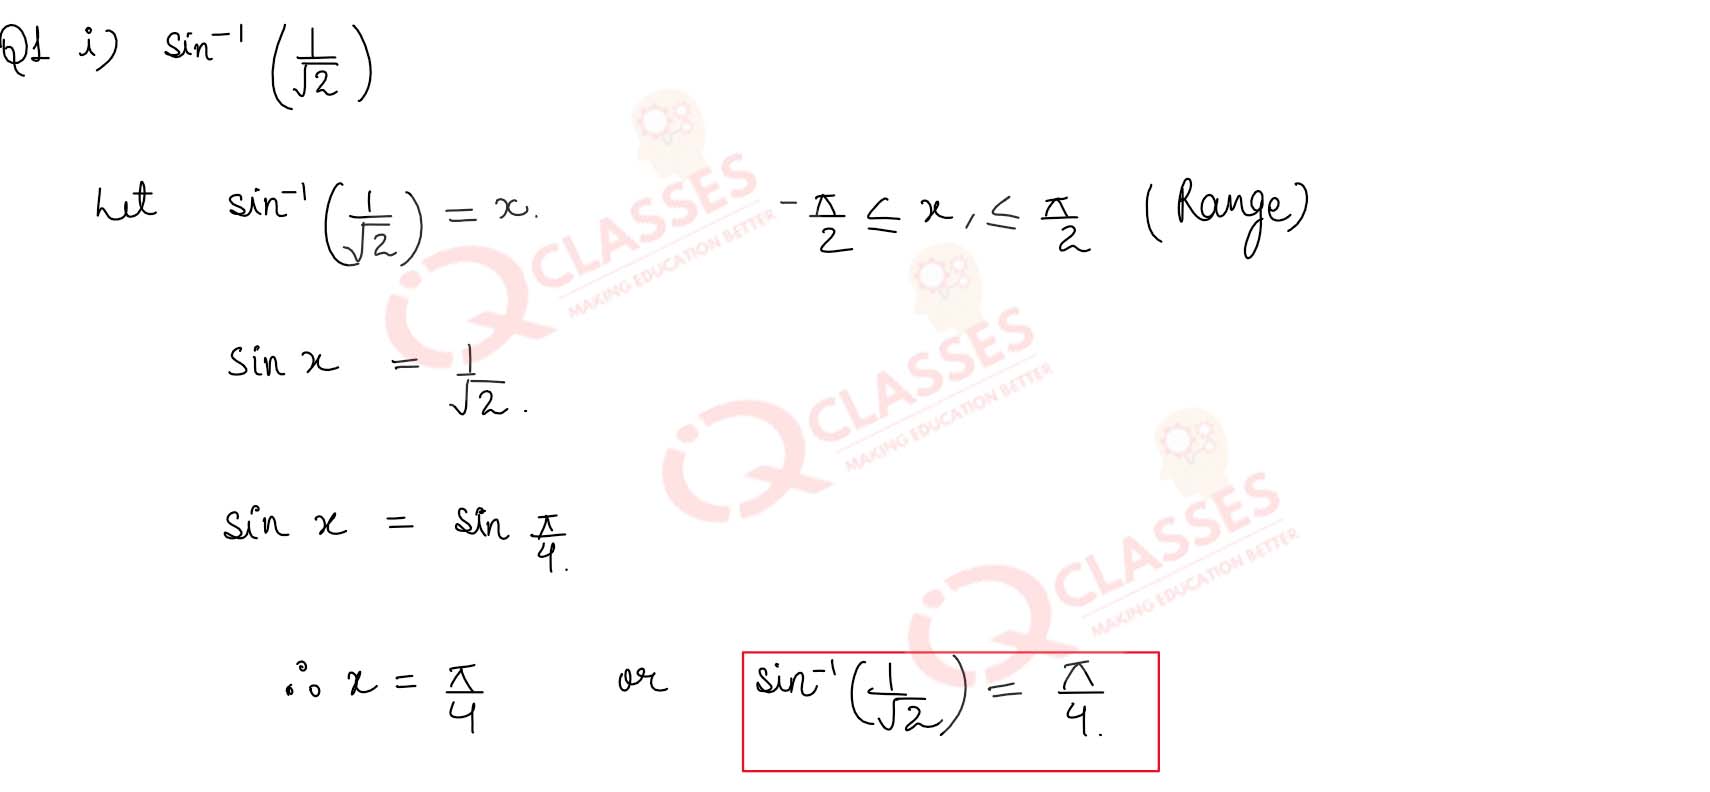 Q1 i) sin⁻¹ (1/√2)
Let sin⁻¹ (1/√2) = x. -π/2 ≤ x, ≤ π/2 (Range)
sin x = 1/√2.
sin x = sin π/4.
∴ x = π/4 or sin⁻¹ (1/√2) = π/4.
iQ CLASSES
MAKING EDUCATION BETTER
iQ CLASSES
MAKING EDUCATION BETTER
iQ CLASSES
MAKING EDUCATION BETTER